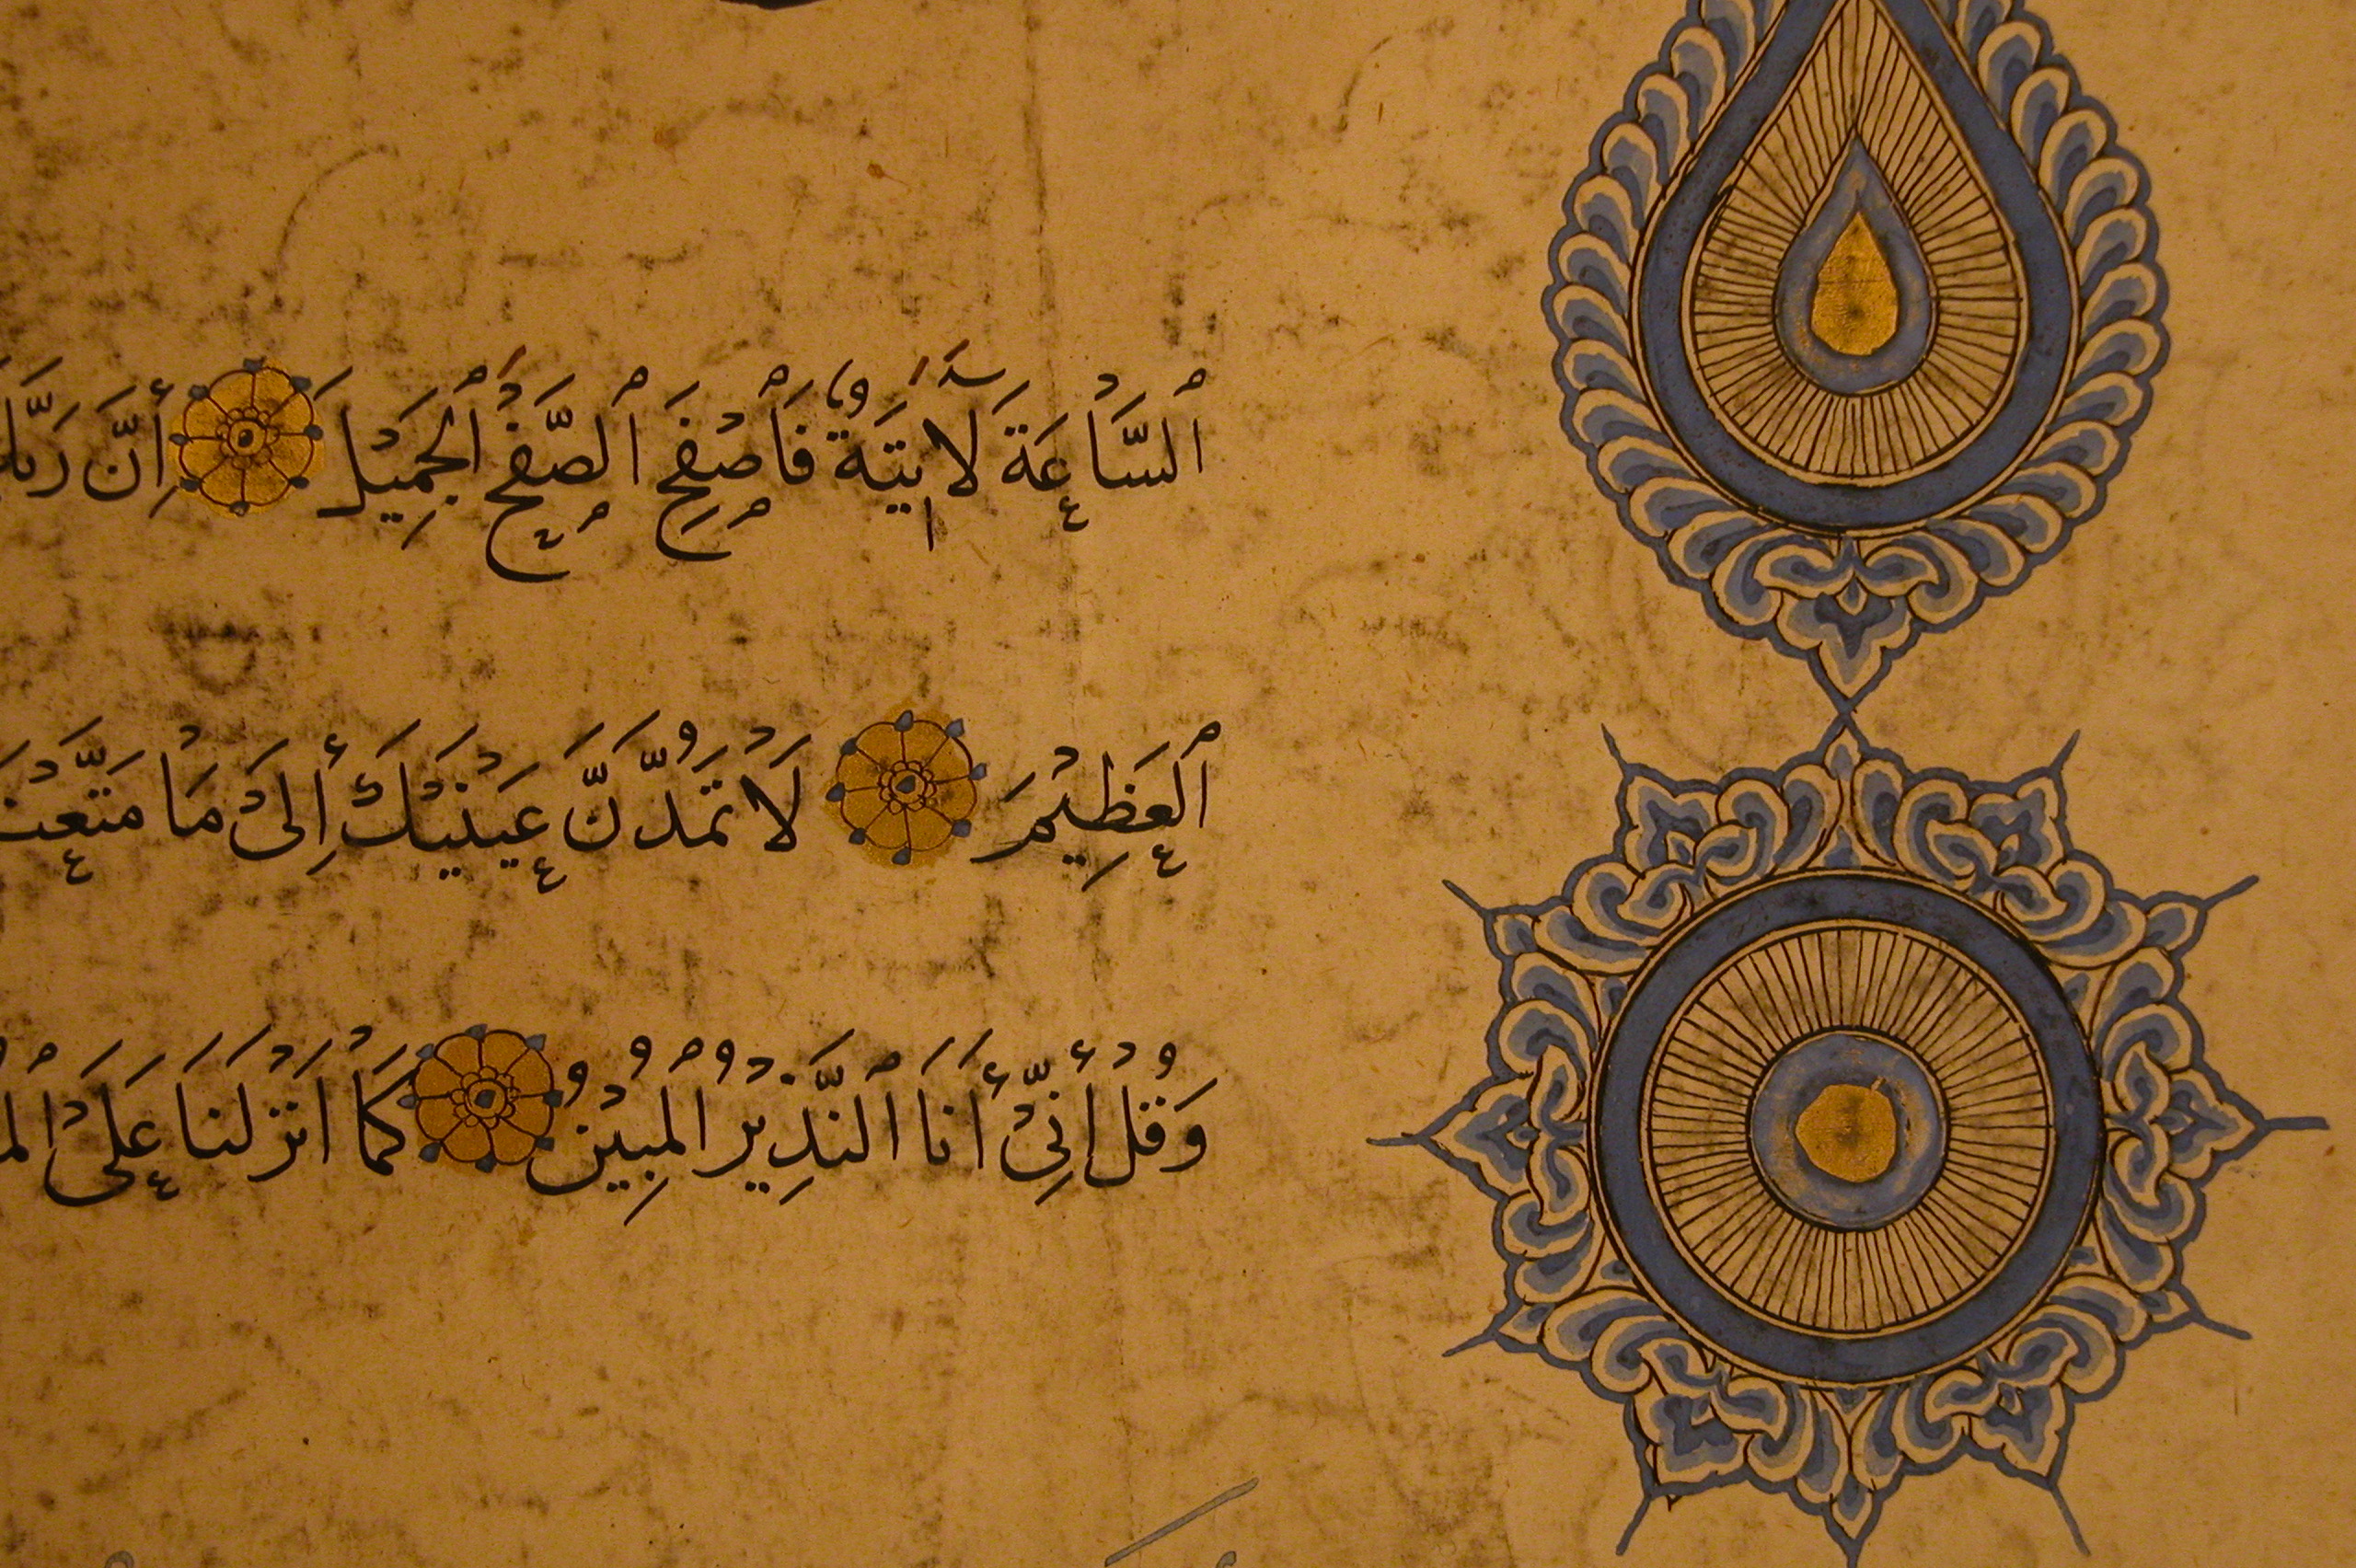 ٱلسَّاعَةَ لَاٰتِيَةٌ فَٱصْفَحِ ٱلصَّفْحَ ٱلْجَمِيْلَ إِنَّ رَبَّكَ
ٱلْعَظِيْمَ لَا تَمُدَّنَّ عَيْنَيْكَ إِلَىْ مَا مَتَّعْنَا
وَقُلْ إِنِّيْ أَنَا ٱلنَّذِيْرُ ٱلْمُبِيْنُ كَمَا أَنْزَلْنَا عَلَىْ